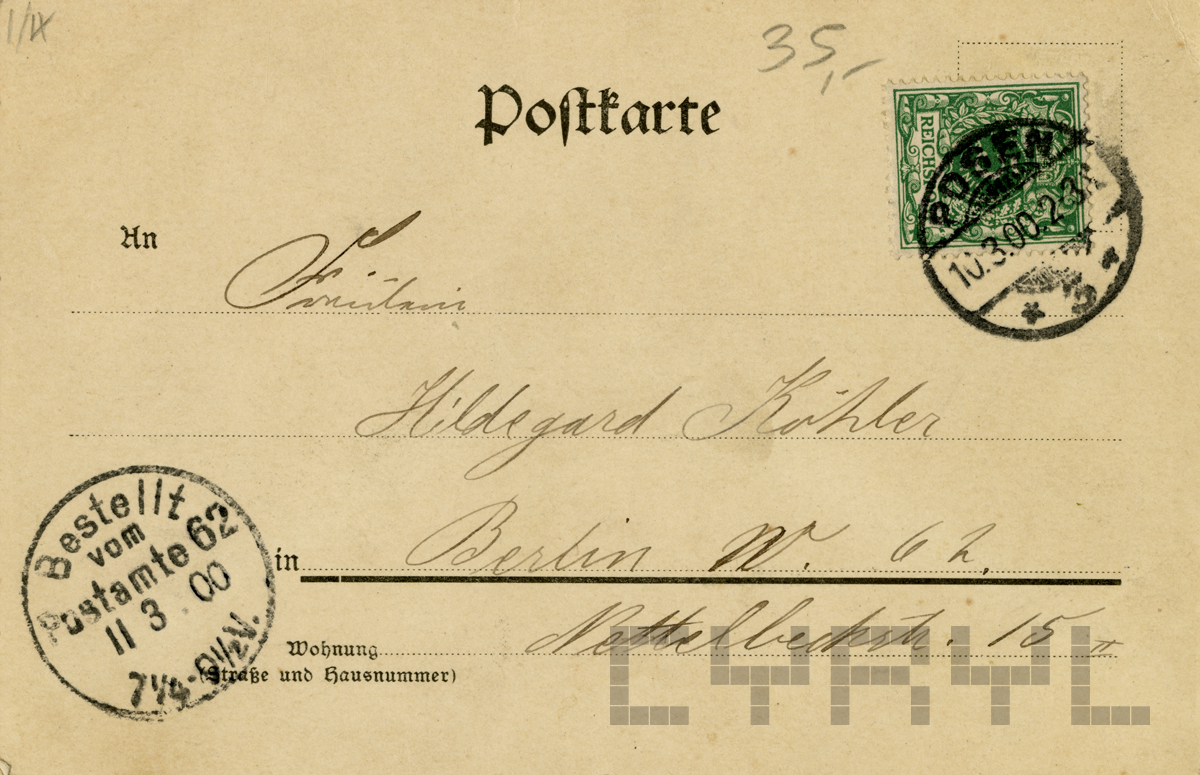 I/IX
35,-
Postkarte
REICHS
POSEN
10.3.00.2-3N
* 5 *
An Fräulein
Hildegard Köhler
in Berlin W. 62.
Nettelbeckstr. 15 II
Wohnung
(Straße und Hausnummer)
Bestellt
vom
Postamte 62
11 3 . 00
7¼-8½V.
CYRYL